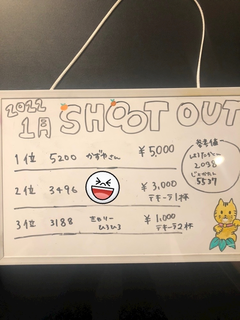 2022
1月 SHOOT OUT
1位 5200 かずやさん ¥5,000
2位 3496 ¥3,000
テキーラ1杯
3位 3188 ¥1,000
ひろひろ テキーラ2杯
参考値
5537